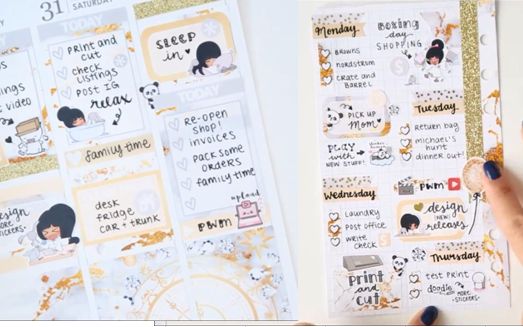 31
SATURDAY
TODAY
t video
design
MORE
STICKERS
TODAY
print and
cut
check
listings
post IG
relax
family time
desk
fridge
car + trunk
SLEEP
in
TODAY
re-open
shop!
invoices
pack some
orders
family time
upload
PWM
Monday
BROWNS
nordstrom
crate and
barrel
BOXING
day
SHOPPING
PICK UP
MOM
PLAY
with
NEW STUFF!
Tuesday
Return bag
michael's
hunt
dinner out!
Wednesday
Laundry
post office
write
check
PWM
design
NEW
releases
print
and
cut
Thursday
test print
doodle
MORE
STICKERS